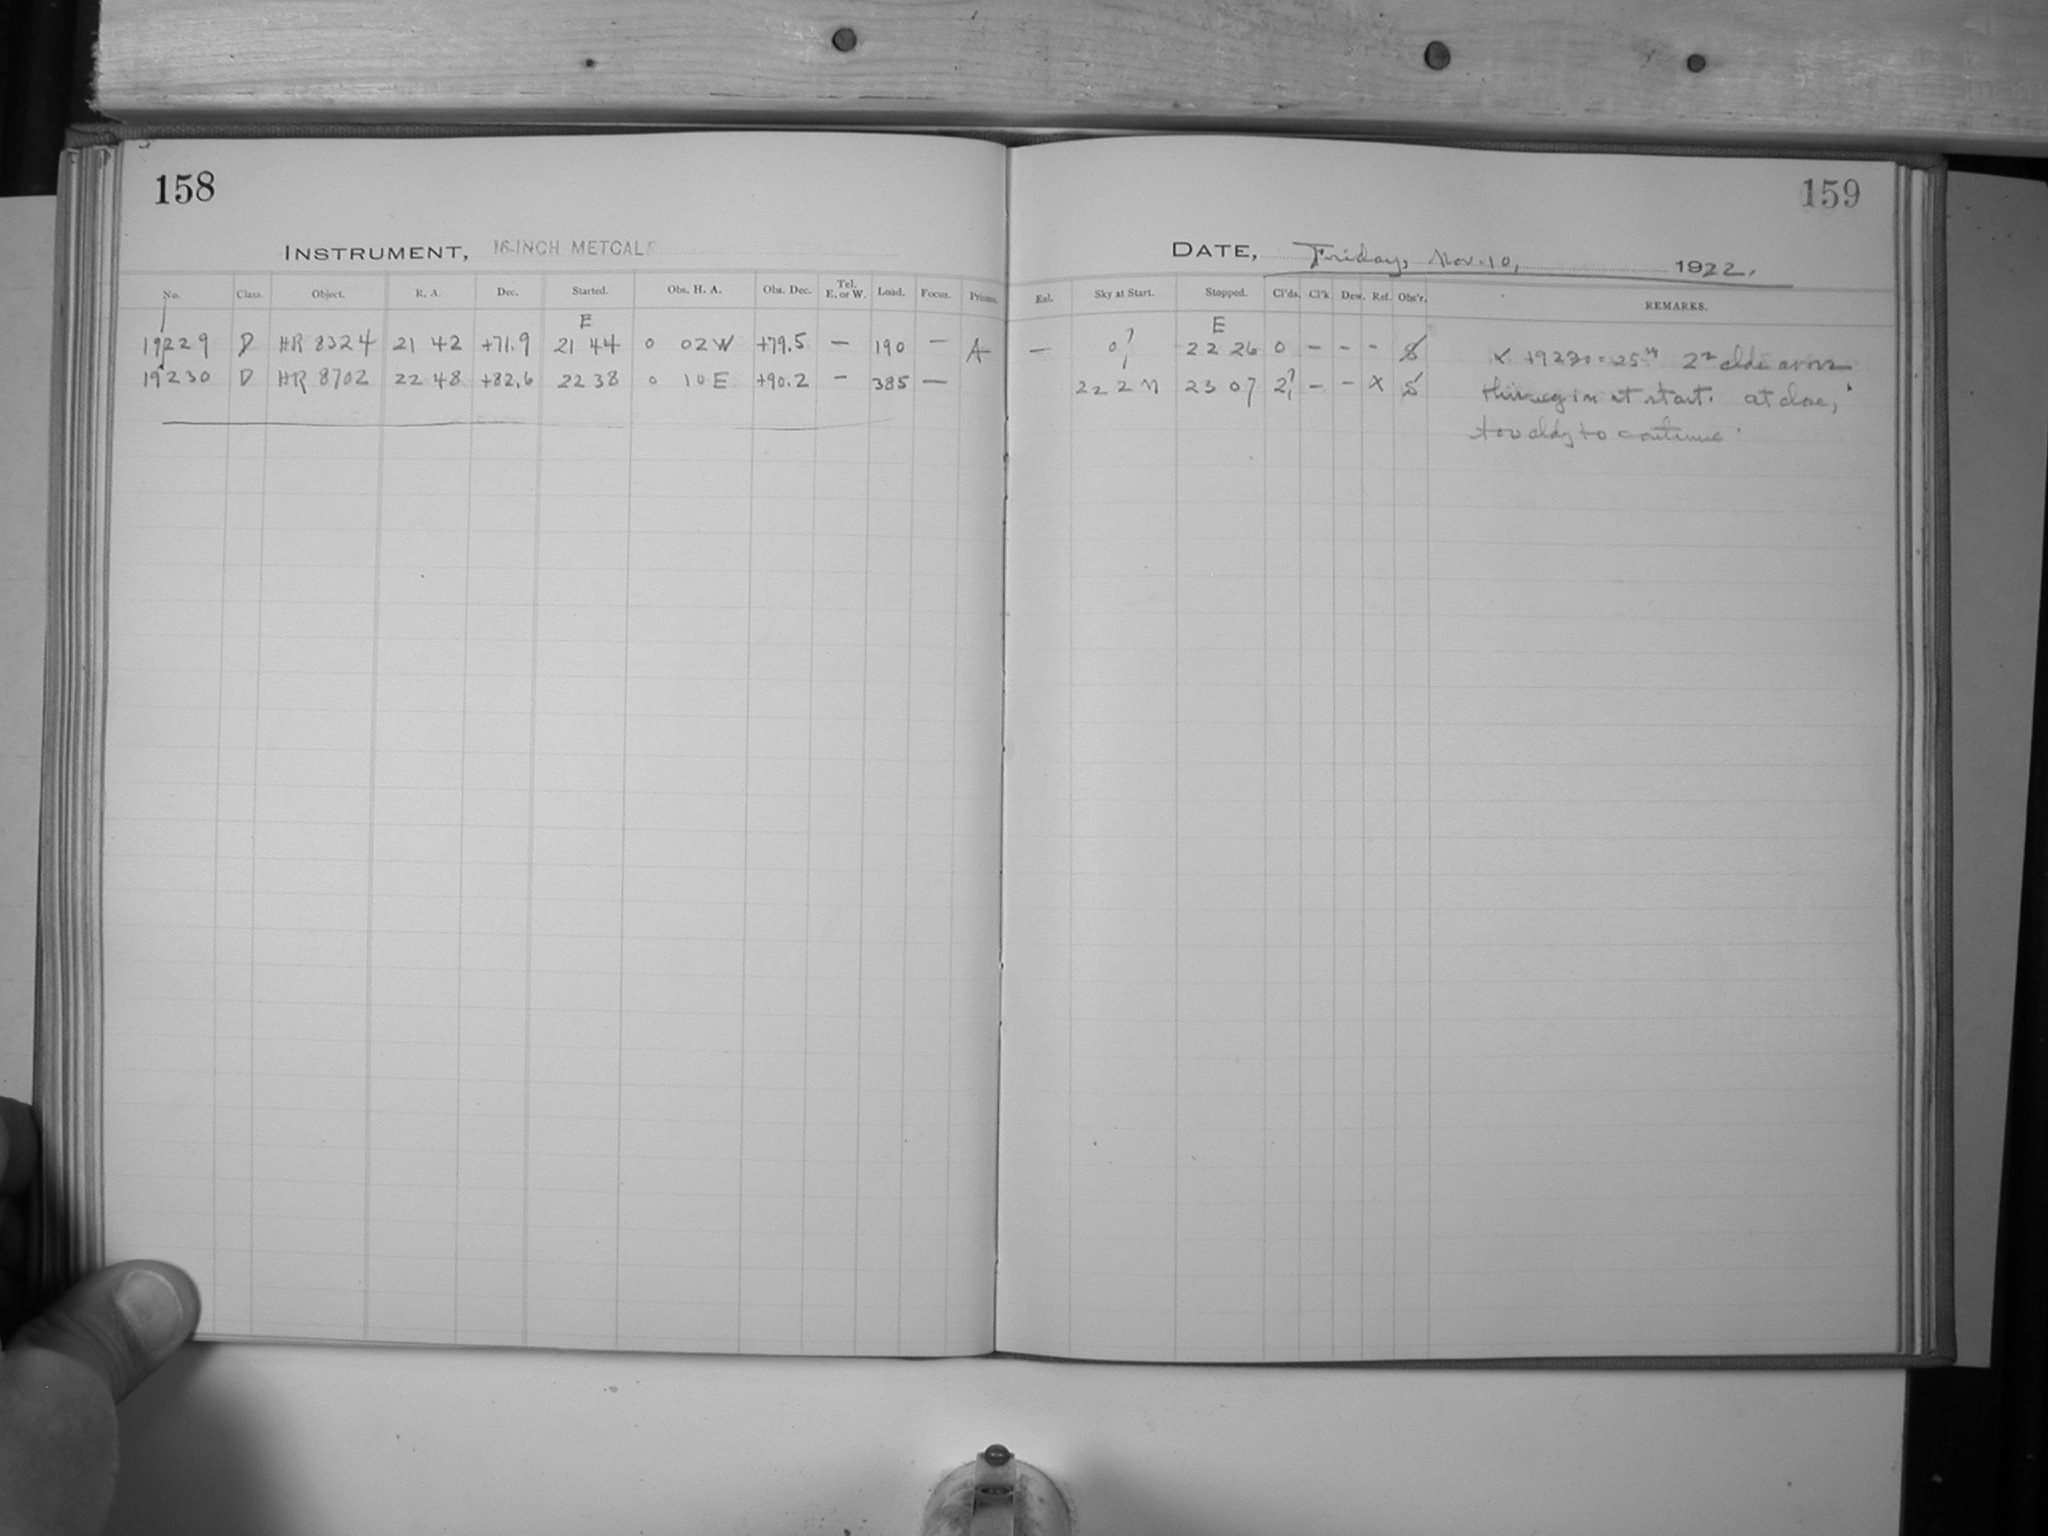 158
159
INSTRUMENT, 16-INCH METCALF
DATE, Friday, Nov. 10, 1922.
No. Class. Object. R. A. Dec. Started. Obs. H. A. Obs. Dec. Tel. E. or W. Load. Focus. Prisms. Eal. Sky at Start. Stopped. Cl'ds. Cl'k. Dew. Ref. Obs'r. REMARKS.
E E
19229 D HR 8324 21 42 +71.9 21 44 0 02 W +79.5 — 190 — A — 0? 22 26 0 - - - S
19230 D HR 8702 22 48 +82.6 22 38 0 10 E +90.2 — 385 — 22 2 N 23 07 2? - - X S
X 19230 = 25 m 2 clds
at start. at close,
too cldy to continue.